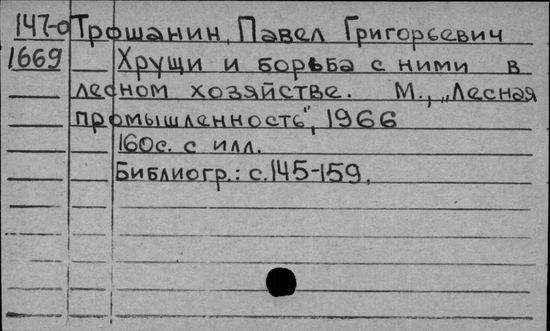 147-0 Трошанин, Павел Григорьевич
1669 Хрущи и борьба с ними в
лесном хозяйстве. М., „Лесная
промышленность", 1966
160с. с илл.
Библиогр.: с.145-159.